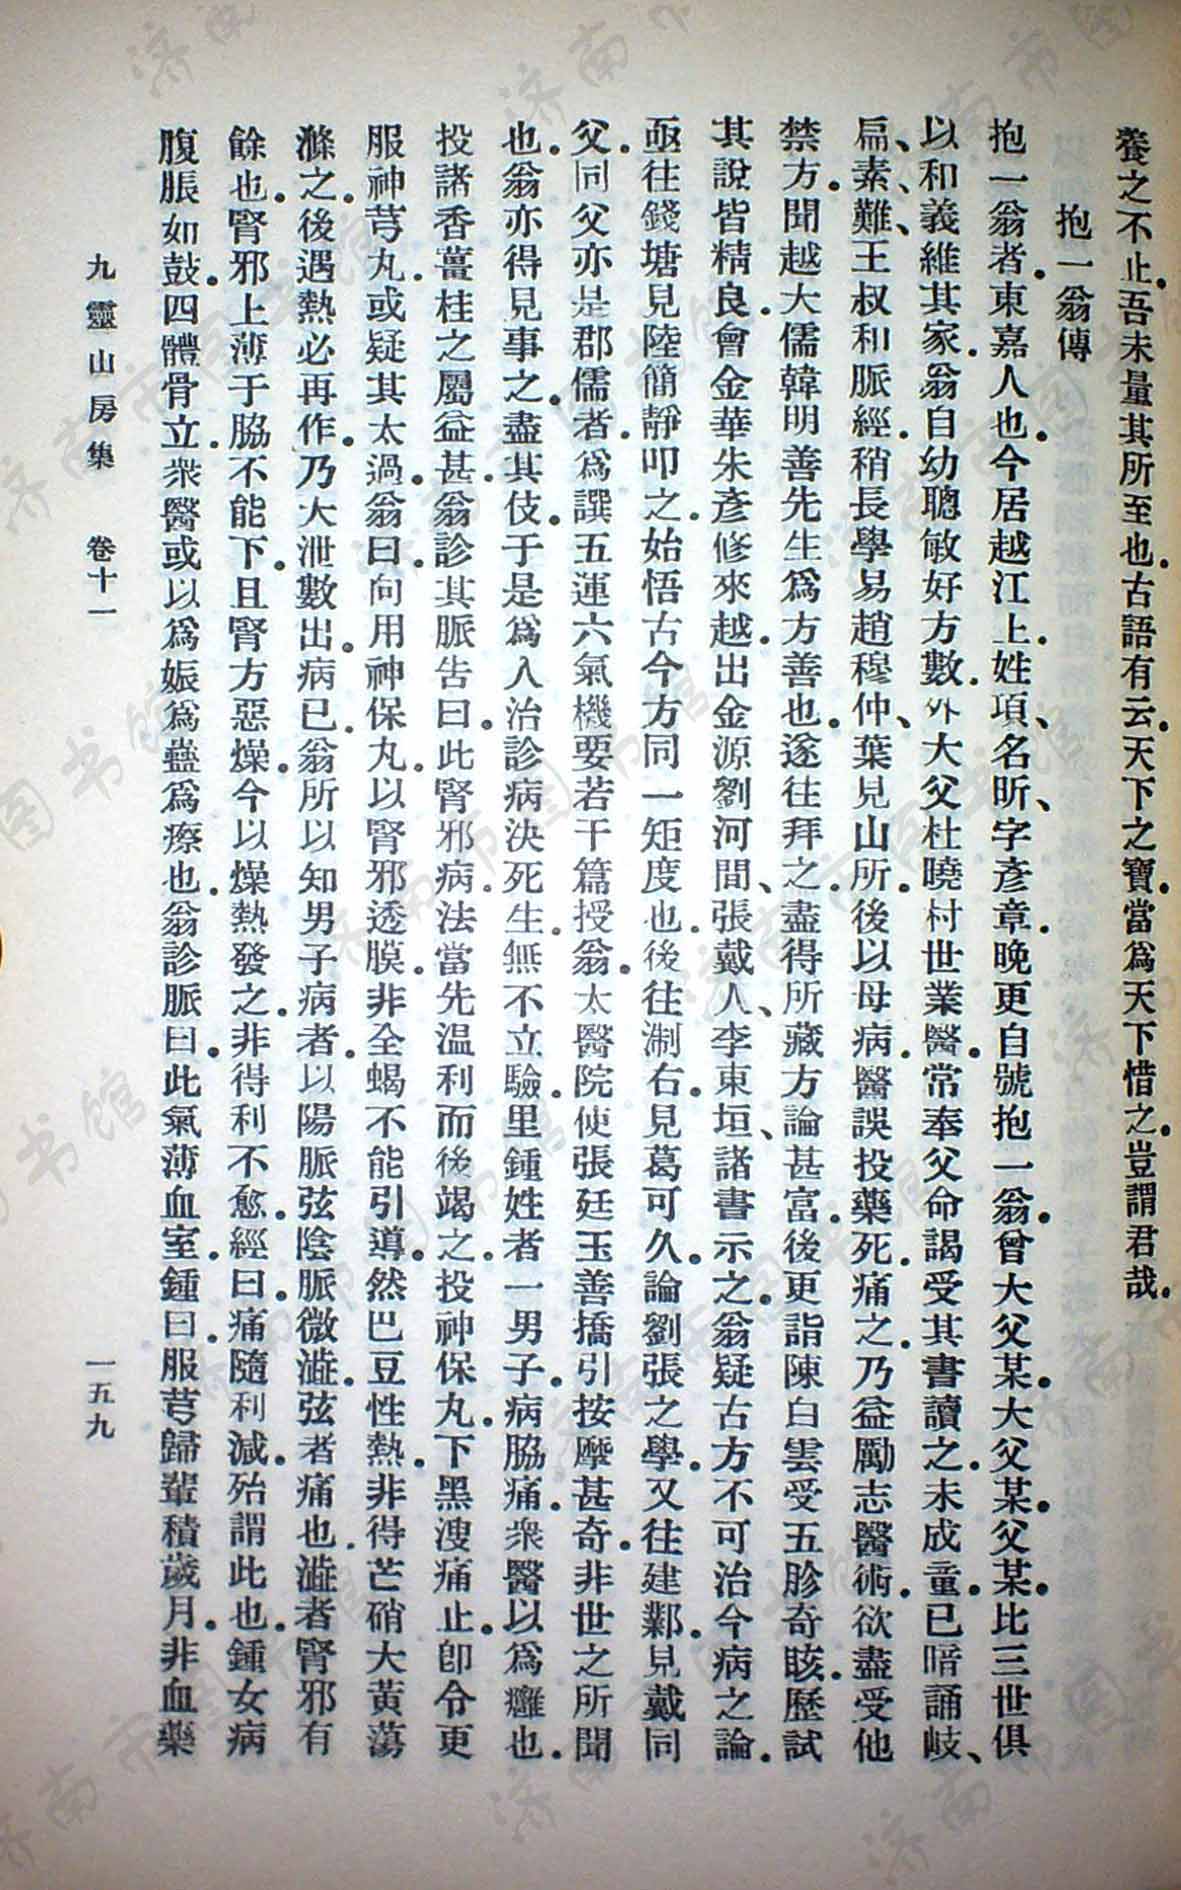 養之不止。吾未量其所至也。古語有云。天下之寶。當爲天下惜之。豈謂君哉。
抱一翁傳
抱一翁者。東嘉人也。今居越江上。姓項、名昕、字彥章。晚更自號抱一翁。曾大父某。大父某。父某。比三世俱
以和義維其家。翁自幼聰敏好方數。外大父杜曉村世業醫。常奉父命謁受其書讀之。未成童。已暗誦岐、
扁、素、難、王叔和脈經。稍長學易趙穆仲、葉見山所。後以母病。醫誤投藥死。痛之。乃益勵志醫術。欲盡受他
禁方。聞越大儒韓明善先生爲方善也。遂往拜之。盡得所藏方論甚富。後更詣陳白雲受五胗奇賅。歷試
其說皆精良。會金華朱彥修來越。出金源劉河間、張戴人、李東垣、諸書示之。翁疑古方不可治今病之論。
亟往錢塘見陸簡靜叩之。始悟古今方同一矩度也。後往淛右。見葛可久。論劉張之學。又往建鄴。見戴同
父。同父亦是郡儒者。爲譔五運六氣機要若干篇授翁。太醫院使張廷玉善撟引按摩甚奇。非世之所聞
也。翁亦得見事之。盡其伎。于是爲人治診病決死生。無不立驗。里鍾姓者一男子。病脇痛。衆醫以爲癰也。
投諸香薑桂之屬益甚。翁診其脈告曰。此腎邪病。法當先温利而後竭之。投神保丸。下黑溲痛止。卽令更
服神芎丸。或疑其太過。翁曰。向用神保丸。以腎邪透膜。非全蝎不能引導。然巴豆性熱。非得芒硝大黃蕩
滌之。後遇熱必再作。乃大泄數出。病已。翁所以知男子病者。以陽脈弦。陰脈微澁。弦者痛也。澁者腎邪有
餘也。腎邪上薄于脇。不能下。且腎方惡燥。今以燥熱發之。非得利不愈。經曰。痛隨利減。殆謂此也。鍾女病
腹脹如鼓。四體骨立。衆醫或以爲娠爲蠱爲瘵也。翁診脈曰。此氣薄血室。鍾曰。服芎歸輩積歲月。非血藥
九靈山房集 卷十一 一五九